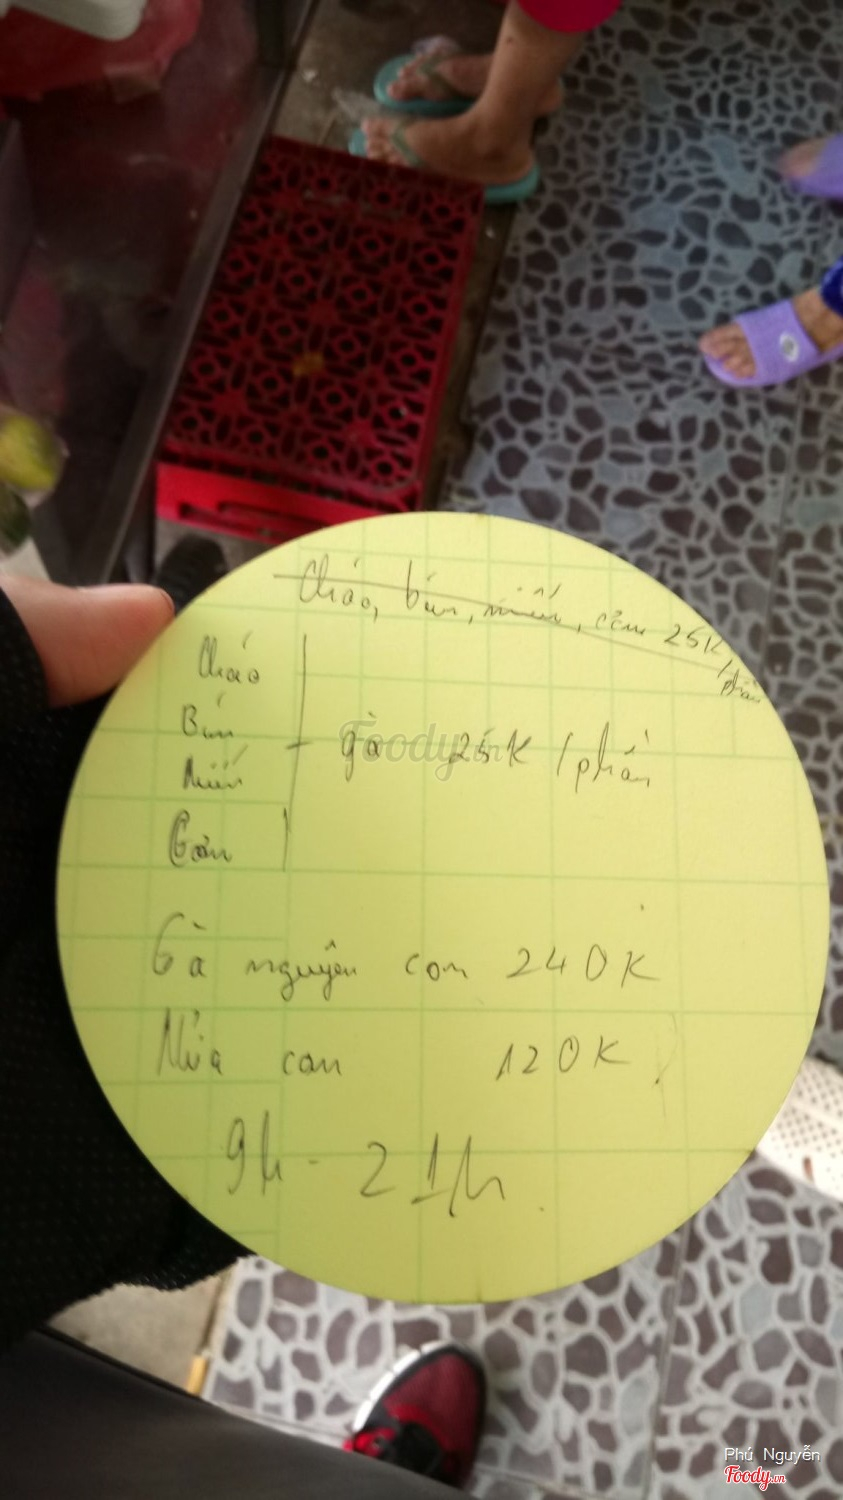 Cháo, bún, miến, cơm 25K
/phần
Cháo
Bún
Miến
Cơm
gà 25K /phần
Foody.vn
Gà nguyên con 240K
Nửa con 120K
9h - 21h.
Phú Nguyễn
Foody.vn